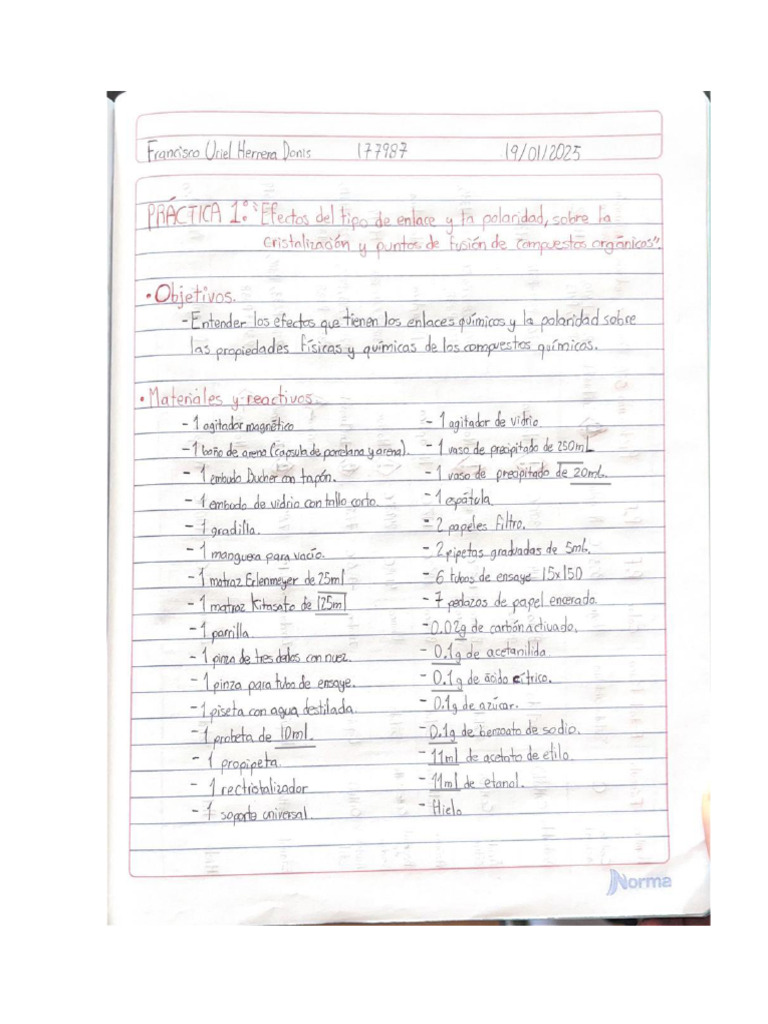 Francisco Uriel Herrera Donis 177987 19/01/2025
PRÁCTICA 1°: "Efectos del tipo de enlace y la polaridad, sobre la
cristalización y puntos de fusión de compuestos orgánicos".
• Objetivos.
- Entender los efectos que tienen los enlaces químicos y la polaridad sobre
las propiedades físicas y químicas de los compuestos químicos.
• Materiales y reactivos.
- 1 agitador magnético
- 1 baño de arena (capsula de porcelana y arena).
- 1 embudo Bucher con tapón.
- 1 embudo de vidrio con tallo corto.
- 1 gradilla.
- 1 manguera para vacío.
- 1 matraz Erlenmeyer de 25ml
- 1 matraz Kitasato de 125ml
- 1 parrilla
- 1 pinza de tres dedos con nuez.
- 1 pinza para tubo de ensaye.
- 1 piseta con agua destilada.
- 1 probeta de 10ml.
- 1 propipeta.
- 1 rectristalizador
- 1 soporte universal.
- 1 agitador de vidrio
- 1 vaso de precipitado de 250mL
- 1 vaso de precipitado de 20mL.
- 1 espátula
- 2 papeles filtro.
- 2 pipetas graduadas de 5mL.
- 6 tubos de ensaye 15x150
- 7 pedazos de papel encerado.
- 0.02g de carbón activado.
- 0.1g de acetanilida
- 0.1g de ácido cítrico.
- 0.1g de azúcar.
- 0.1g de benzoato de sodio.
- 11ml de acetato de etilo.
- 11ml de etanol.
- Hielo
Norma